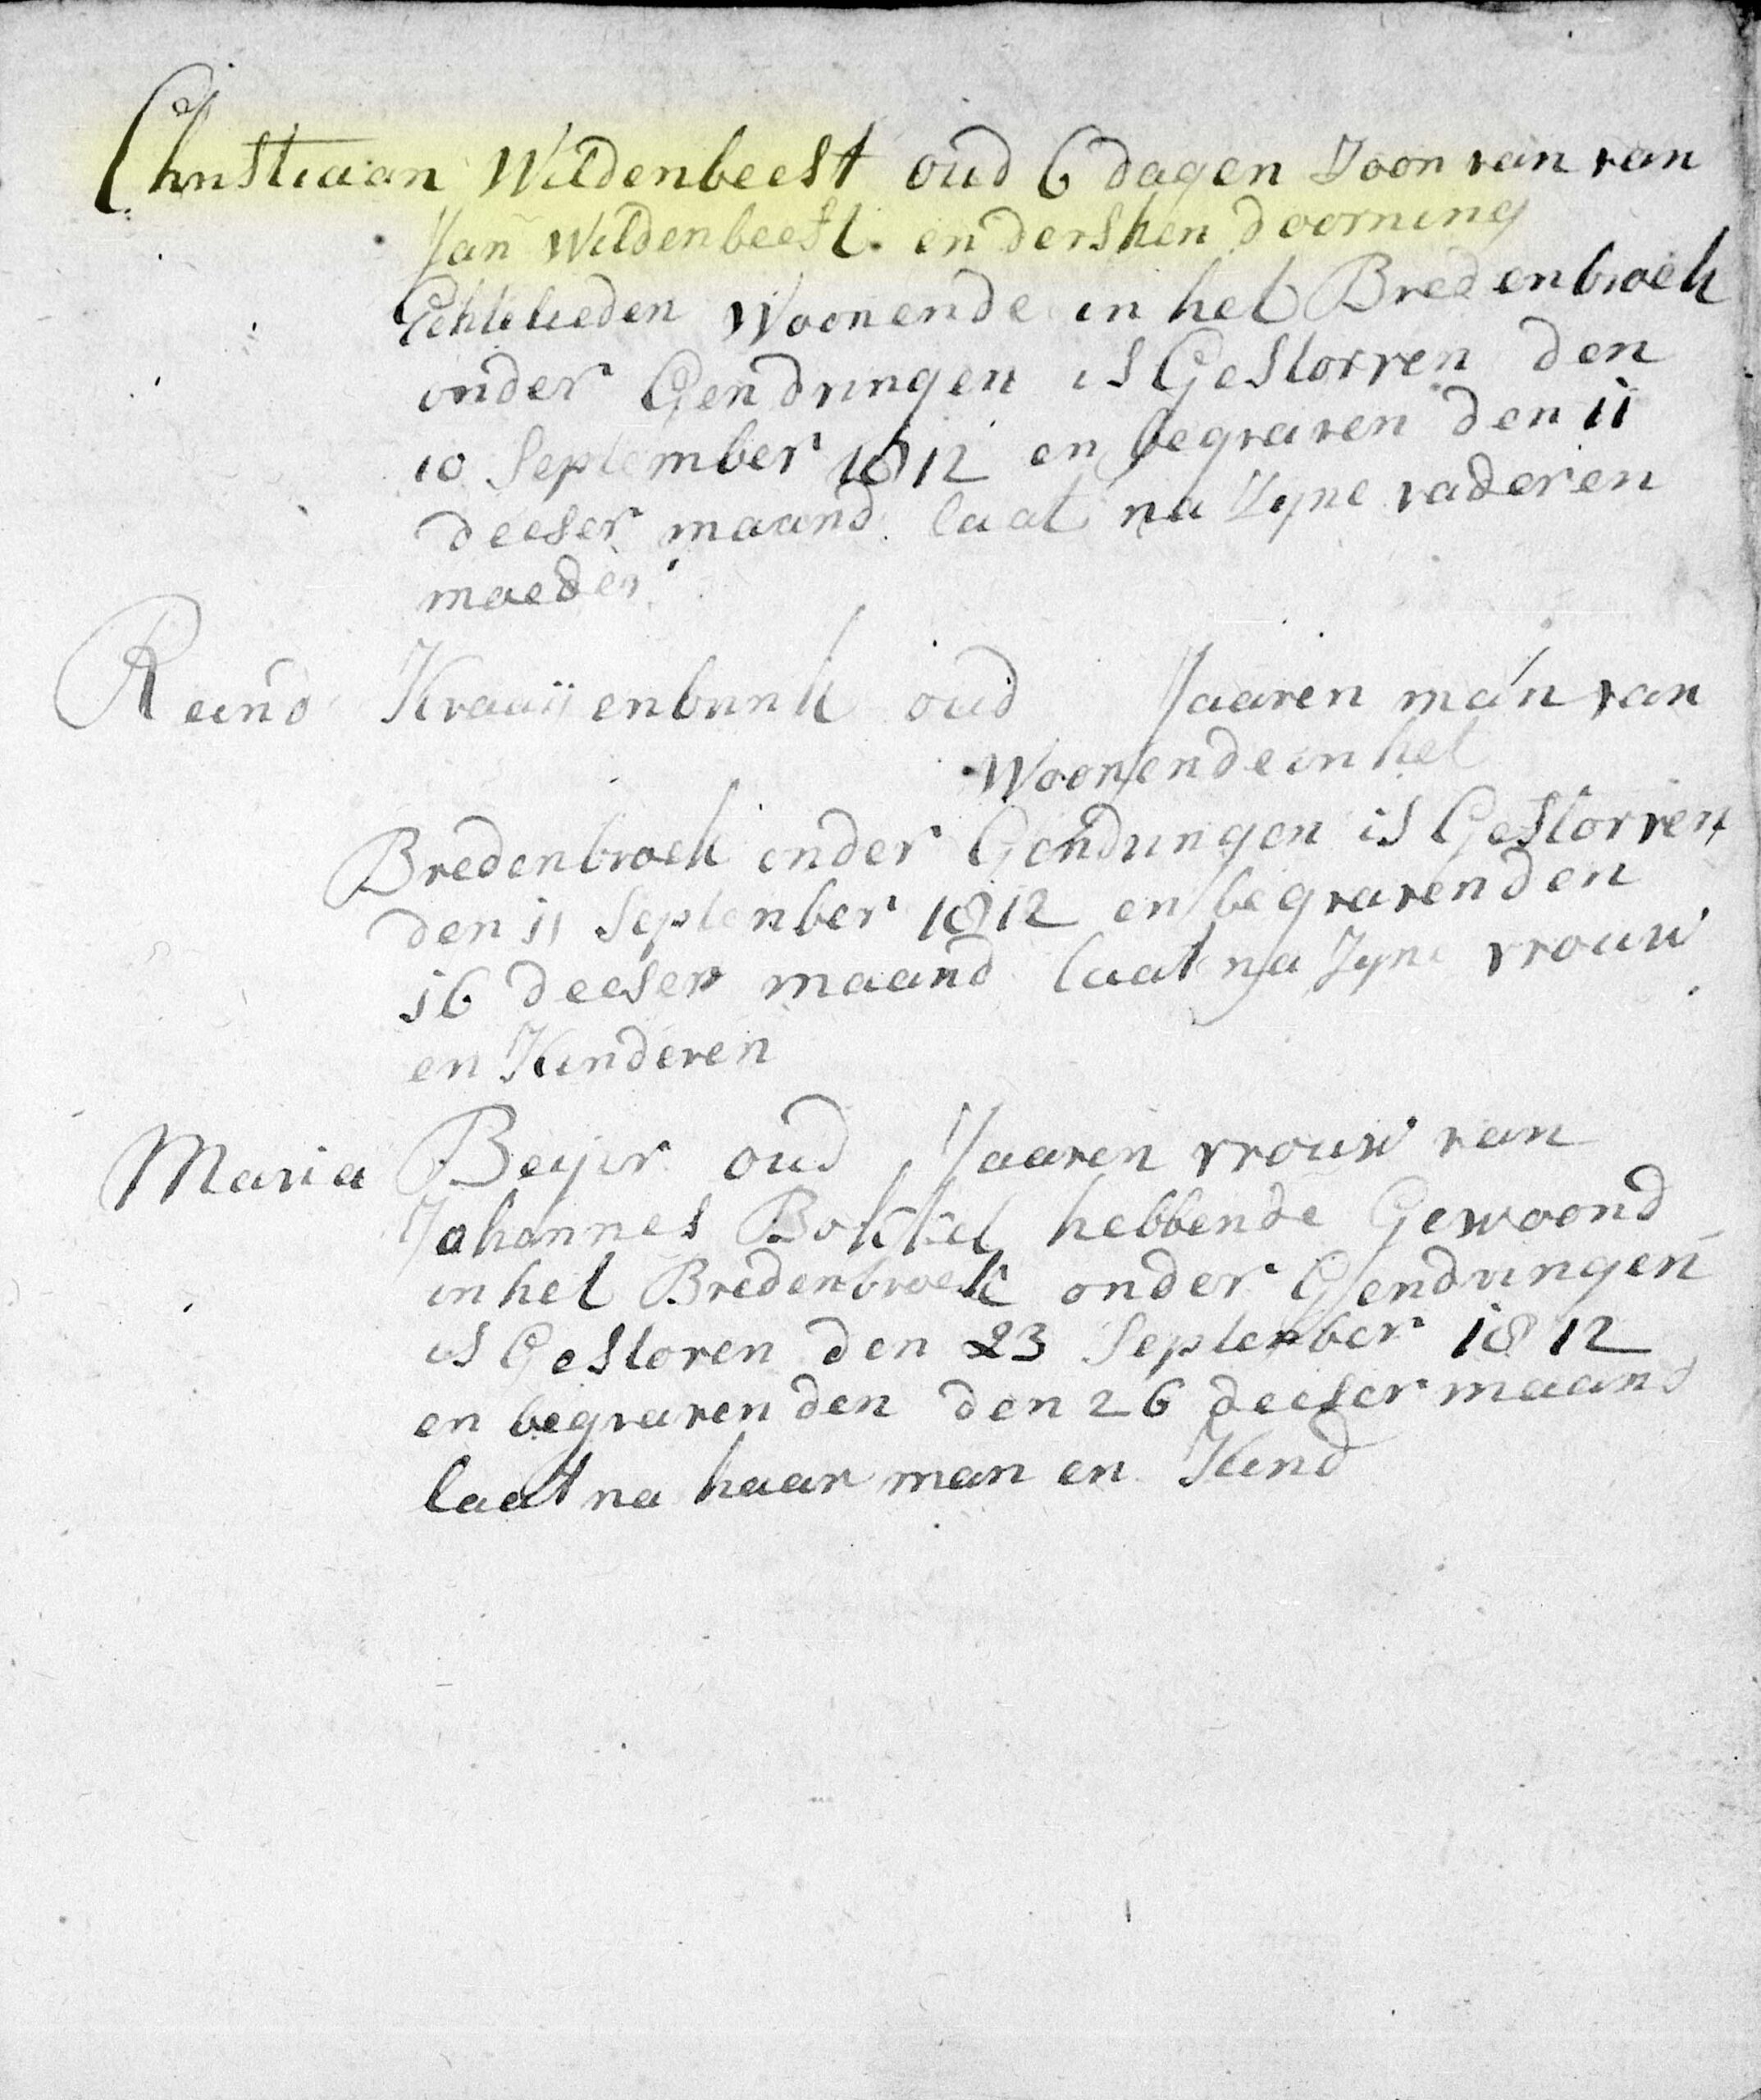 Christiaan Wildenbeest oud 6 dagen Zoon van van
Jan Wildenbeest en dersken doorning
Echtelieden Woonende in het Bredenbroek
onder Gendringen is Gestorven den
10 September 1812 en begraven den 11
deeser maand laat na Zyne vader en
moeder
Reind Kraaijenbrink oud Jaaren man van
Woonende in het
Bredenbroek onder Gendringen is Gestorven
den 11 September 1812 en begraven den
16 deeser maand laat na Zyne vrouw
en Kinderen
Maria Beijer oud Jaaren vrouw van
Johannes Bokkel hebbende Gewoond
in het Bredenbroek onder Gendringen
is Gestoren den 23 September 1812
en begraven den den 26 deeser maand
laat na haar man en Kind